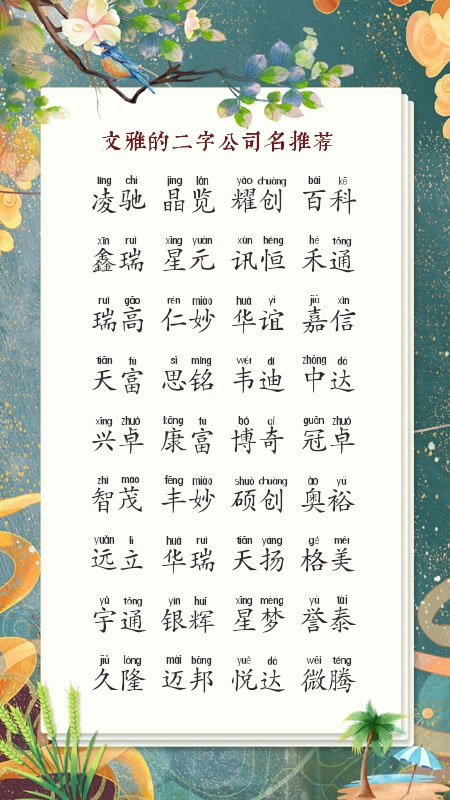 文雅的二字公司名推荐
líng chí jīng lǎn yào chuàng bǎi kē
凌驰 晶览 耀创 百科
xīn ruì xīng yuán xùn héng hé tōng
鑫瑞 星元 讯恒 禾通
ruì gāo rén miào huá yì jiā xìn
瑞高 仁妙 华谊 嘉信
tiān fù sī míng wéi dí zhōng dá
天富 思铭 韦迪 中达
xīng zhuó kāng fù bó qí guān zhuó
兴卓 康富 博奇 冠卓
zhì mào fēng miào shuò chuàng ào yù
智茂 丰妙 硕创 奥裕
yuǎn lì huá ruì tiān yáng gé měi
远立 华瑞 天扬 格美
yǔ tōng yín huī xīng mèng yù tài
宇通 银辉 星梦 誉泰
jiǔ lóng mài bāng yuè dá wēi téng
久隆 迈邦 悦达 微腾